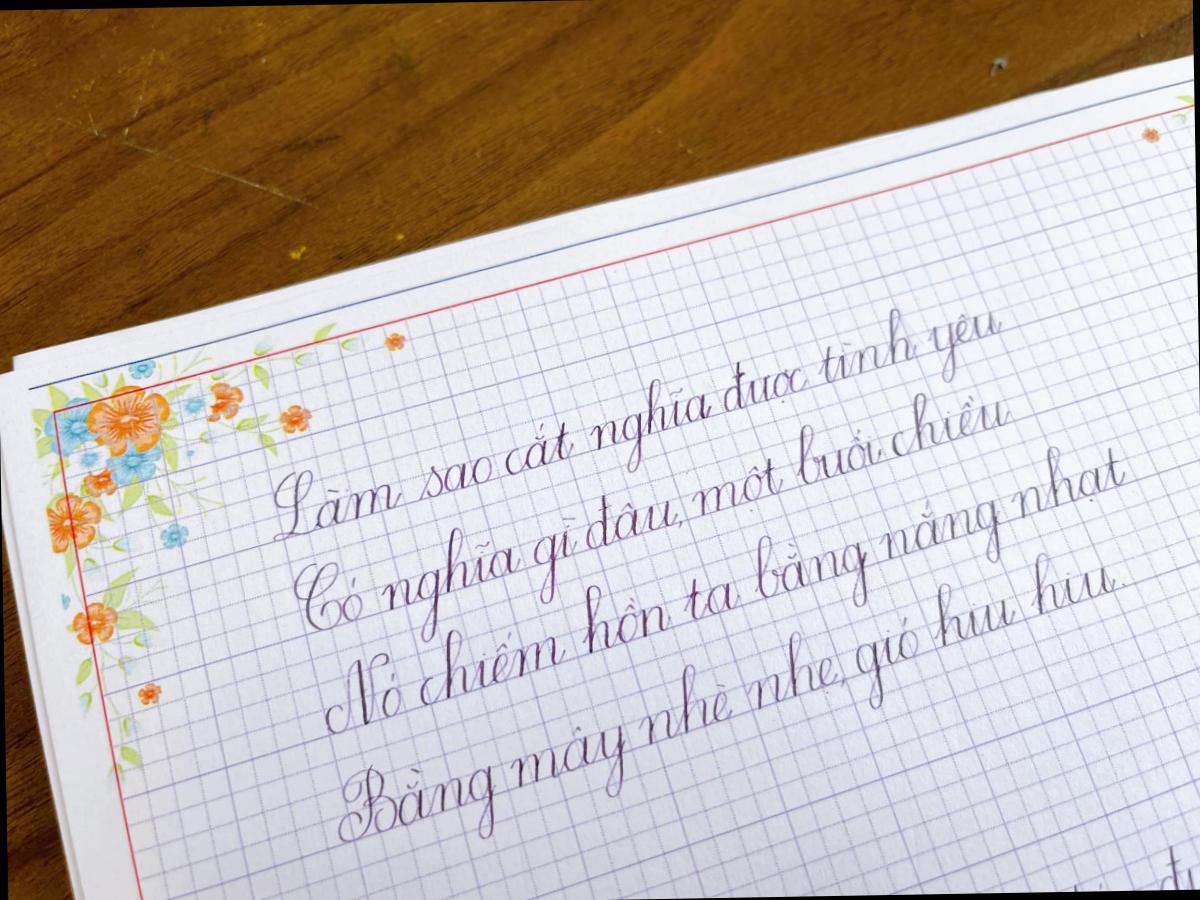 Làm sao cắt nghĩa được tình yêu
Có nghĩa gì đâu, một buổi chiều
Nó chiếm hồn ta bằng nắng nhạt
Bằng mây nhè nhẹ, gió hiu hiu.